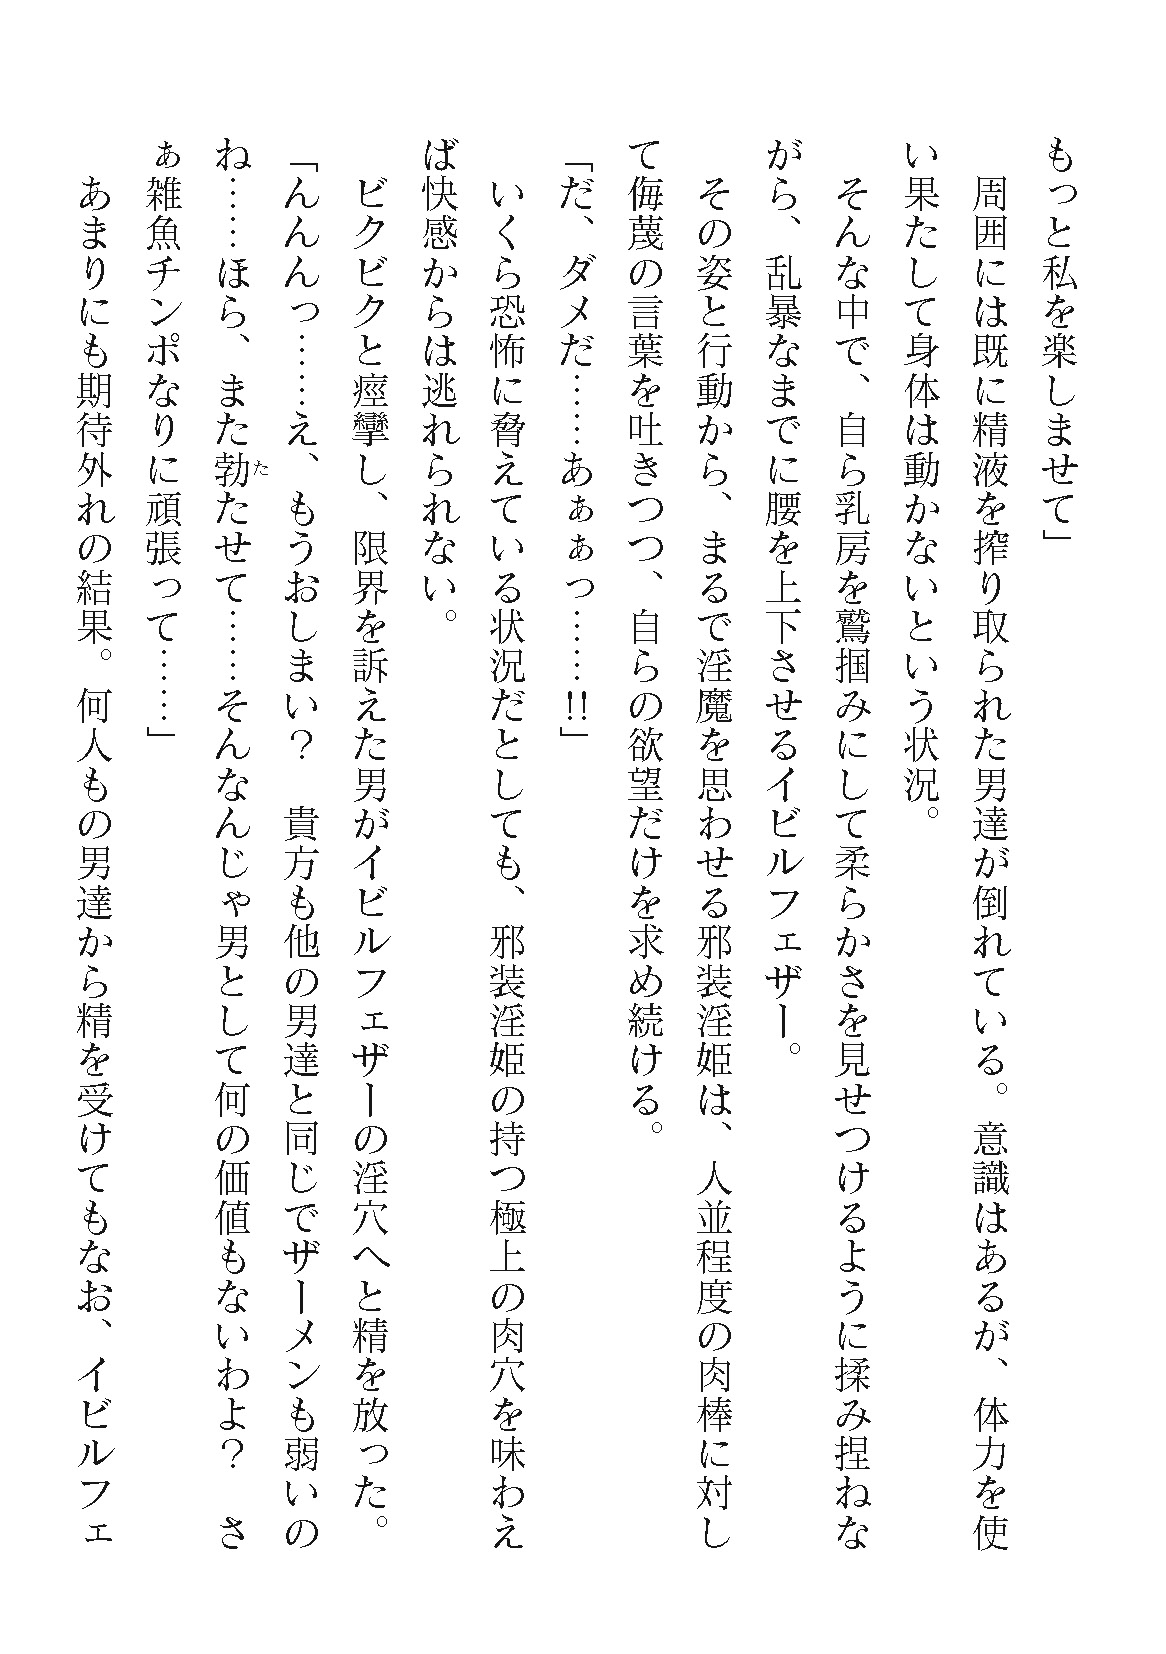 もっと私を楽しませて」
　周囲には既に精液を搾り取られた男達が倒れている。意識はあるが、体力を使
い果たして身体は動かないという状況。
　そんな中で、自ら乳房を鷲掴みにして柔らかさを見せつけるように揉み捏ねな
がら、乱暴なまでに腰を上下させるイビルフェザー。
　その姿と行動から、まるで淫魔を思わせる邪装淫姫は、人並程度の肉棒に対し
て侮蔑の言葉を吐きつつ、自らの欲望だけを求め続ける。
「だ、ダメだ……あぁぁっ……!!」
　いくら恐怖に脅えている状況だとしても、邪装淫姫の持つ極上の肉穴を味わえ
ば快感からは逃れられない。
　ビクビクと痙攣し、限界を訴えた男がイビルフェザーの淫穴へと精を放った。
「んんんっ……え、もうおしまい？　貴方も他の男達と同じでザーメンも弱いの
ね……ほら、また勃たたせて……そんなんじゃ男として何の価値もないわよ？　さ
ぁ雑魚チンポなりに頑張って……」
　あまりにも期待外れの結果。何人もの男達から精を受けてもなお、イビルフェ